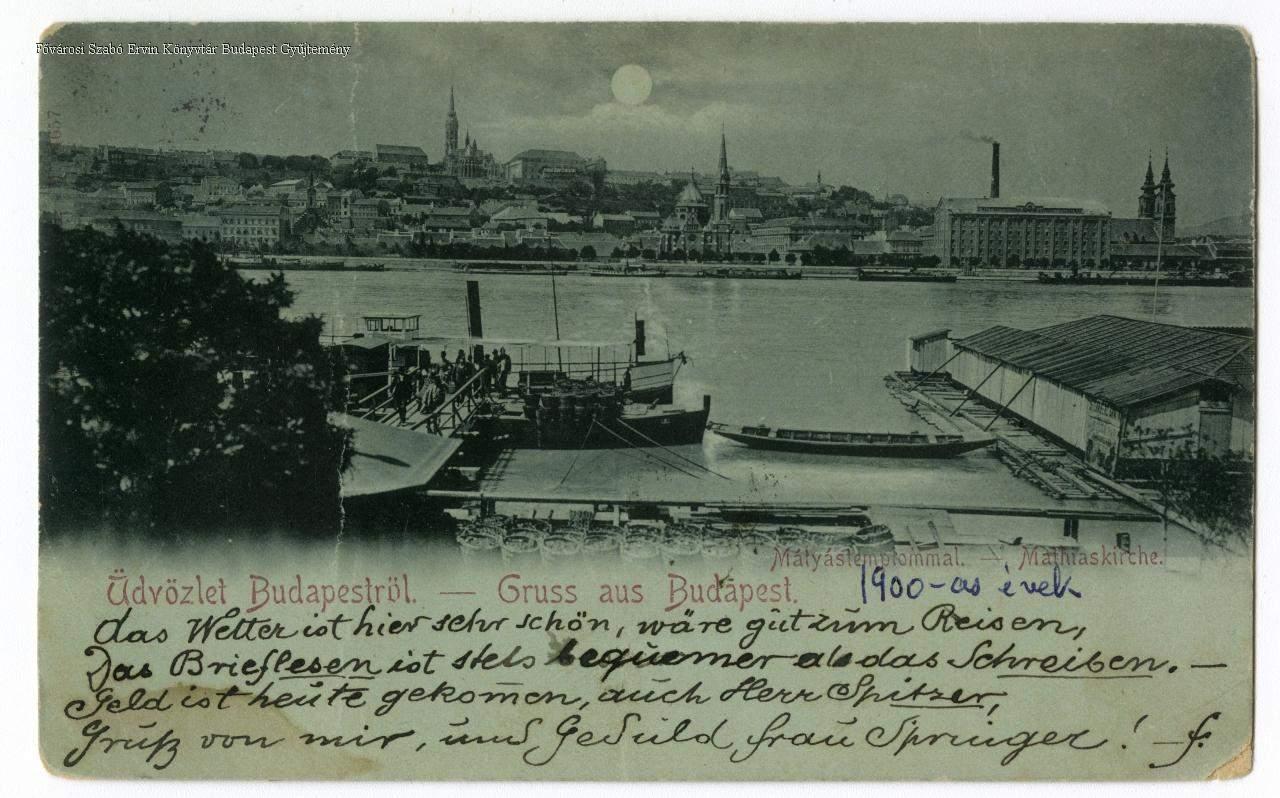 Fővárosi Szabó Ervin Könyvtár Budapest Gyűjtemény
Mátyástemplommal. — Mathiaskirche.
Üdvözlet Budapestről. — Gruss aus Budapest.
1900-as évek
das Wetter ist hier sehr schön, wäre gut zum Reisen,
Das Brieflesen ist stets bequemer als das Schreiben. —
Geld ist heute gekom̄en, auch Herr Spitzer,
Gruß von mir, und Geduld, Frau Springer! — f.